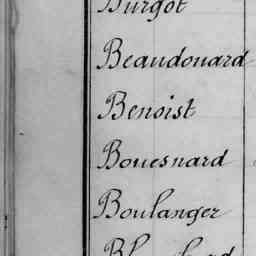 Burgot
Beaudouard
Benoist
Bouesnard
Boulanger